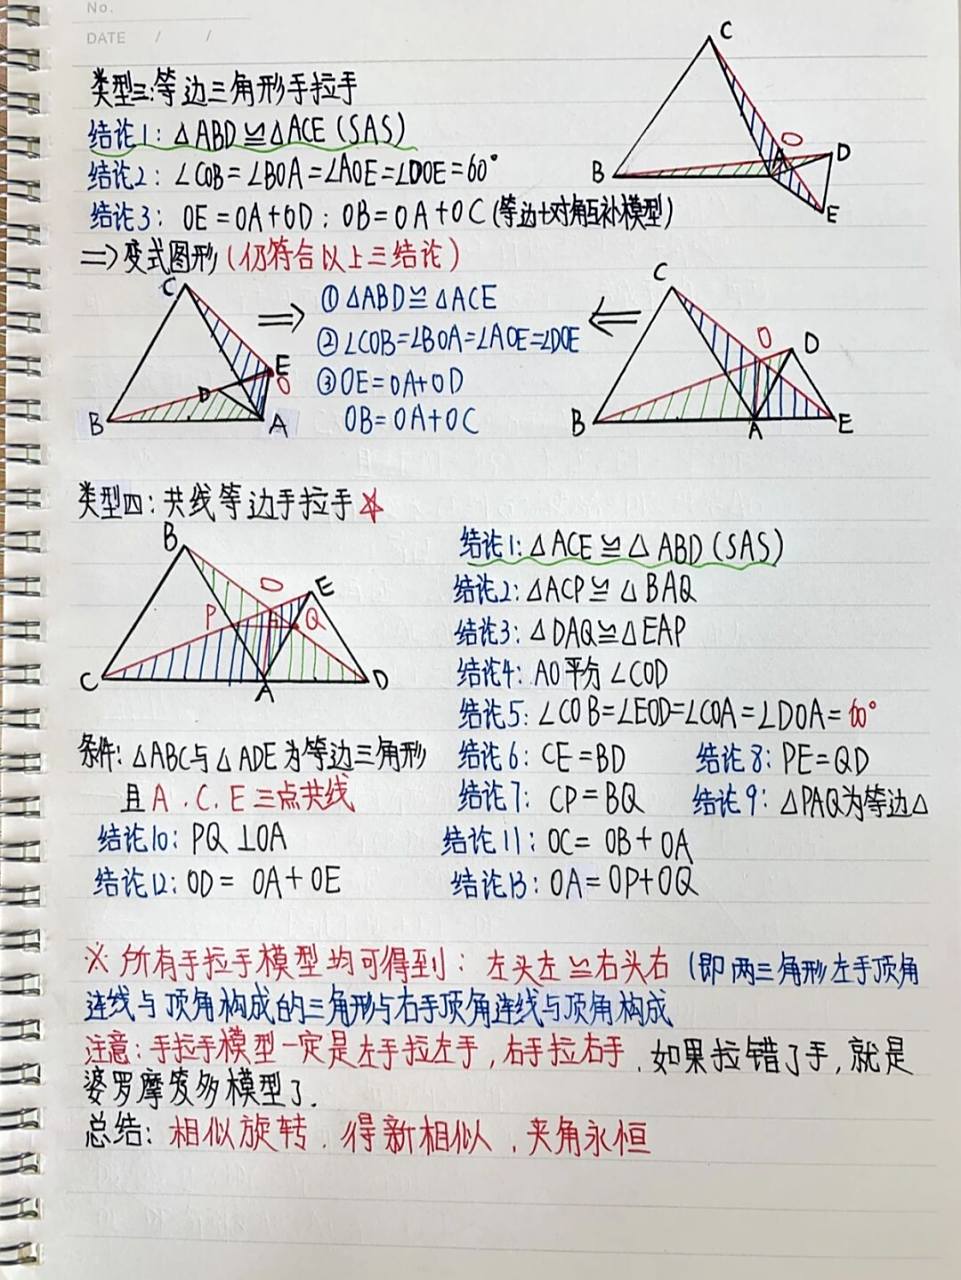 No.
DATE / /
类型三:等边三角形手拉手
结论1: △ABD≌△ACE (SAS)
结论2: ∠COB=∠BOA=∠AOE=∠DOE=60°
结论3: OE=OA+OD; OB=OA+OC (等边+对角互补模型)
=> 变式图形 (仍符合以上三结论)
C
O
A
D
B
E
C
E
D
O
B
A
=> ① △ABD≌△ACE <=
② ∠COB=∠BOA=∠AOE=∠DOE
③ OE=OA+OD
OB=OA+OC
C
O
D
B
A
E
类型四: 共线等边手拉手☆
B
O
E
P
Q
C
A
D
结论1: △ACE≌△ABD (SAS)
结论2: △ACP≌△BAQ
结论3: △DAQ≌△EAP
结论4: AO平分∠COD
结论5: ∠COB=∠EOD=∠COA=∠DOA=60°
条件: △ABC与△ADE为等边三角形
且A.C.E三点共线
结论6: CE=BD 结论8: PE=QD
结论7: CP=BQ 结论9: △PAQ为等边△
结论10: PQ⊥OA 结论11: OC=OB+OA
结论12: OD=OA+OE 结论13: OA=OP+OQ
※所有手拉手模型均可得到: 左头左≌右头右 (即两三角形左手顶角
连线与顶角构成的三角形与右手顶角连线与顶角构成
注意:手拉手模型一定是左手拉左手,右手拉右手.如果拉错了手,就是
婆罗摩笈多模型了.
总结: 相似旋转.得新相似.夹角永恒